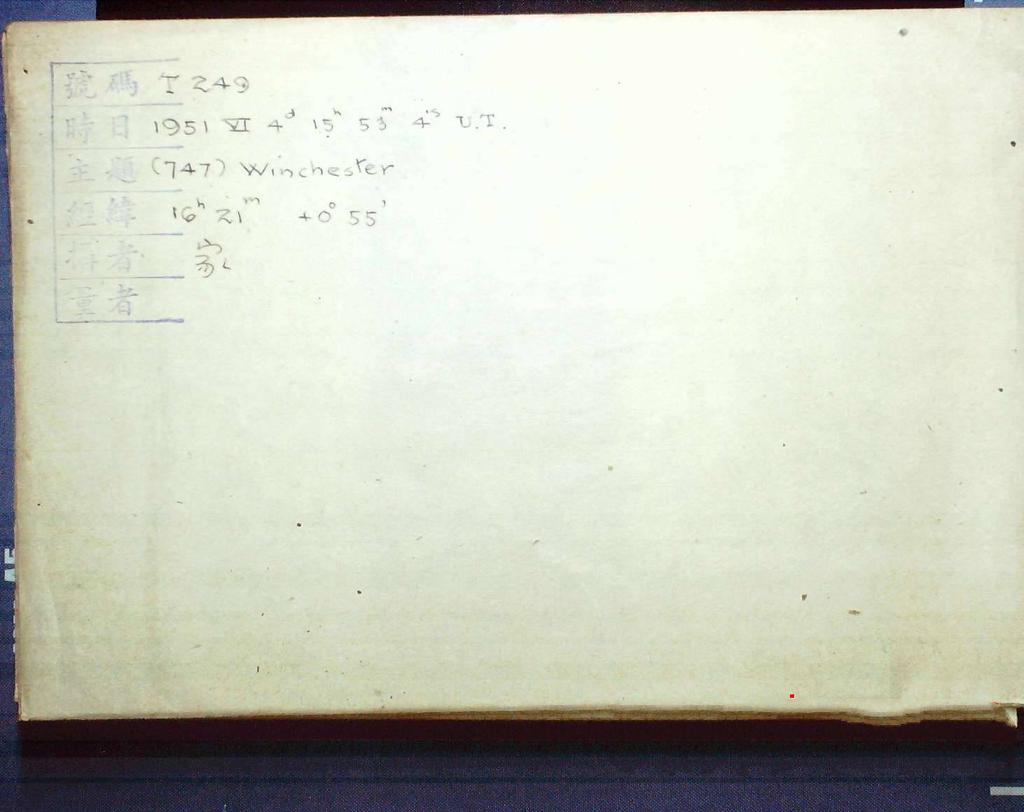 號碼 T 249
時日 1951 VI 4ᵈ 15ʰ 53ᵐ 4ˢ U.T.
主題 (747) Winchester
經緯 16ʰ 21ᵐ +0° 55'
攝者 家
量者